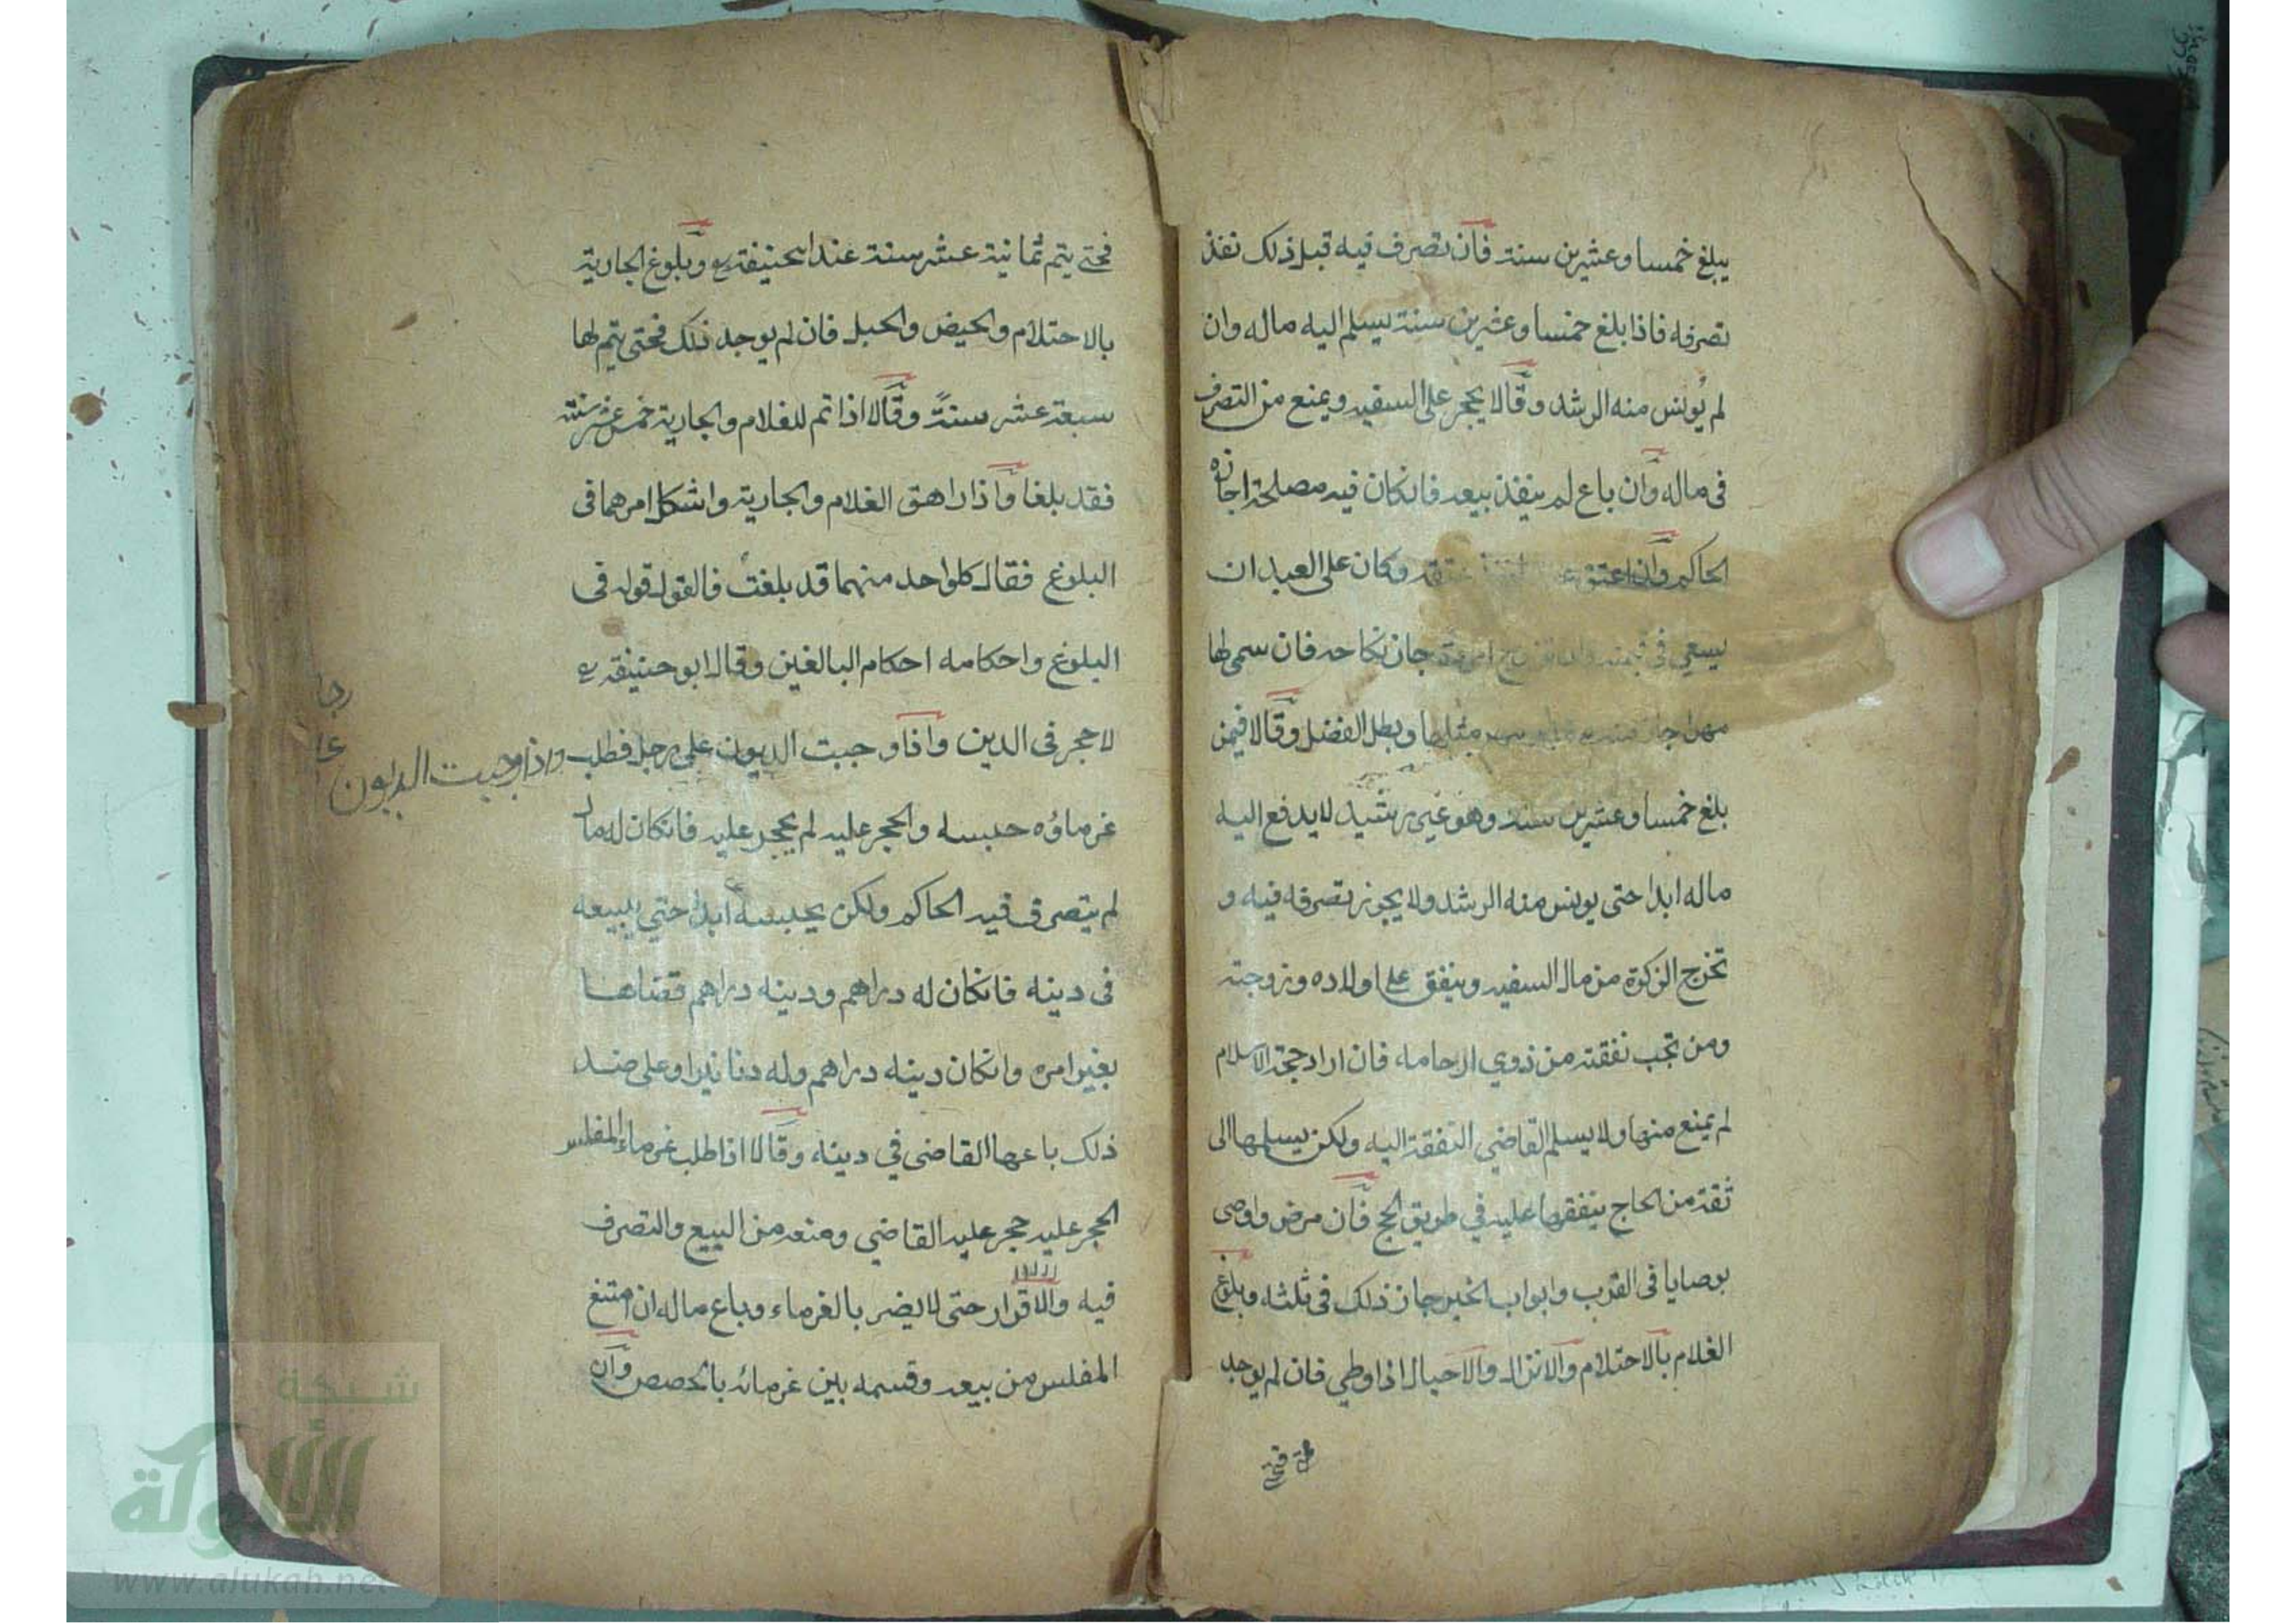 يبلغ خمسا وعشرين سنة فان تصرف فيه قبل ذلك نفذ
تصرفه فاذا بلغ خمسا وعشرين سنة يسلم اليه ماله وان
لم يُونس منه الرشد وقالا يحجر على السفيه ويمنع من التصرف
فى ماله وان باع لم ينفذ بيعه فانكان فيه مصلحة اجازه
الحاكم وان اعتق عتقه وكان على العبد ان
يسعي في قيمته وان تزوج امرءة جاز نكاحه فان سمى لها
مهرا جاز منه مثلها وبطل الفضل وقالا فيمن
بلغ خمسا وعشرين سنة وهو غير رشيد لا يدفع اليه
ماله ابدا حتى يونس منه الرشد ولا يجوز تصرفه فيه و
تخرج الزكوة من مال السفيه وينفق على اولاده وزوجته
ومن تجب نفقته من ذوي ارحامه فان اراد حجة الاسلام
لم يمنع منها ولا يسلم القاضي النفقة اليه ولكن يسلمها الى
ثقة من الحاج ينفقها عليه في طريق الحج فان مرض واوصى
بوصايا فى القرب وابواب الخير جاز ذلك فى ثلثه وبلوغ
الغلام بالاحتلام والانزال والاحبال اذا وطي فان لم يوجد
فحتى
فحتى يتم ثمانية عشر سنة عند ابحنيفة رع وبلوغ الجارية
بالاحتلام والحيض والحبل فان لم يوجد ذلك فحتى يتم لها
سبعة عشر سنةً وقالا اذا تم للغلام والجارية خمس عشر سنة
فقد بلغا واذا راهق الغلام والجارية واشكل امرهما فى
البلوغ فقال كلواحد منهما قد بلغت فالقول قوله فى
البلوغ واحكامه احكام البالغين وقال ابو حنيفة رع
لا حجر فى الدين واذا وجبت الديون على رجل فطلب
غرماؤه حبسه والحجر عليه لم يحجر عليه فانكان له مال
لم يتصرف فيه الحاكم ولكن يحبسه ابدا حتي يبيعه
فى دينه فانكان له دراهم ودينه دراهم قضاها
بغير امره وانكان دينه دراهم وله دنانير او على ضد
ذلك باعها القاضى في دينه وقالا اذا طلب غرماء المفلس
الحجر عليه حجر عليه القاضي ومنعه من البيع والتصرف
فيه والاقرار حتى لا يضر بالغرماء وباع ماله ان امتنع
المفلس من بيعه وقسمه بين غرمائه بالحصص وان
واذا وجبت الديون
شبكة
الألوكة
www.alukah.net